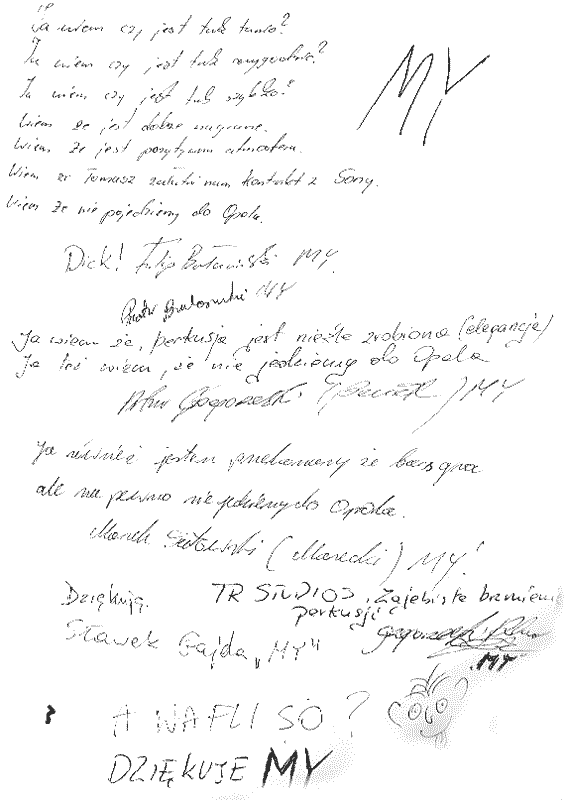 Ja wiem czy jest tak tanio?
Ja wiem czy jest tak wygodnie?
Ja wiem czy jest tak szybko?
Wiem że jest dobrze nagrane.
Wiem że jest pozytywna atmosfera.
Wiem że Tomasz załatwi nam kontrakt z Sony.
Wiem że nie pojedziemy do Opola.
MY
Dick! Filip MY
MY
Ja wiem że, perkusja jest nieźle zrobiona (elegancja)
Ja też wiem, że nie jedziemy do Opola
MY
Ja również jestem przekonany że bas gra
ale na pewno nie jedziemy do Opola.
Marek (Marecki) MY!
Dziękuję. TR STUDIOS. Zajebiste brzmienie
perkusji
Sławek Gajda „MY"
MY
A WAFLI SO?
DZIĘKUJE MY